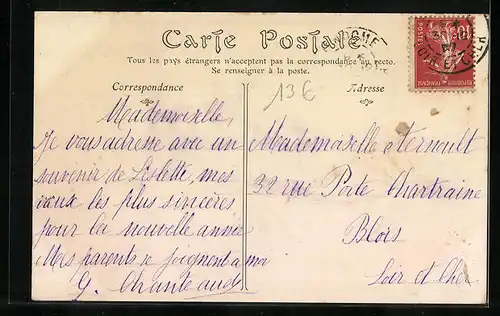 Carte Postale
Tous les pays étrangers n'acceptent pas la correspondance au recto.
Se renseigner à la poste.
Correspondance
Adresse
13€
Mademoiselle,
Je vous adresse avec un
souvenir de Liolette, mes
vœux les plus sincères
pour la nouvelle année
Mes parents se joignent a moi
G. Chanteaud
Mademoiselle eternoult
32 rue Porte Chartraine
Blois
Loir et Cher